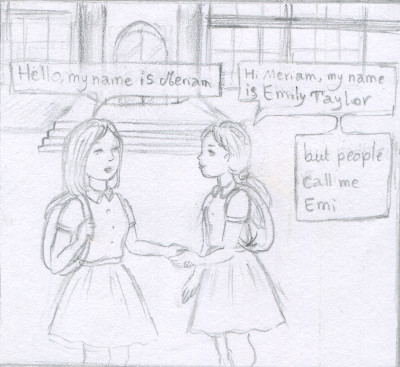 Hello, my name is Meriam
Hi Meriam, my name
is Emily Taylor
but people
call me
Emi